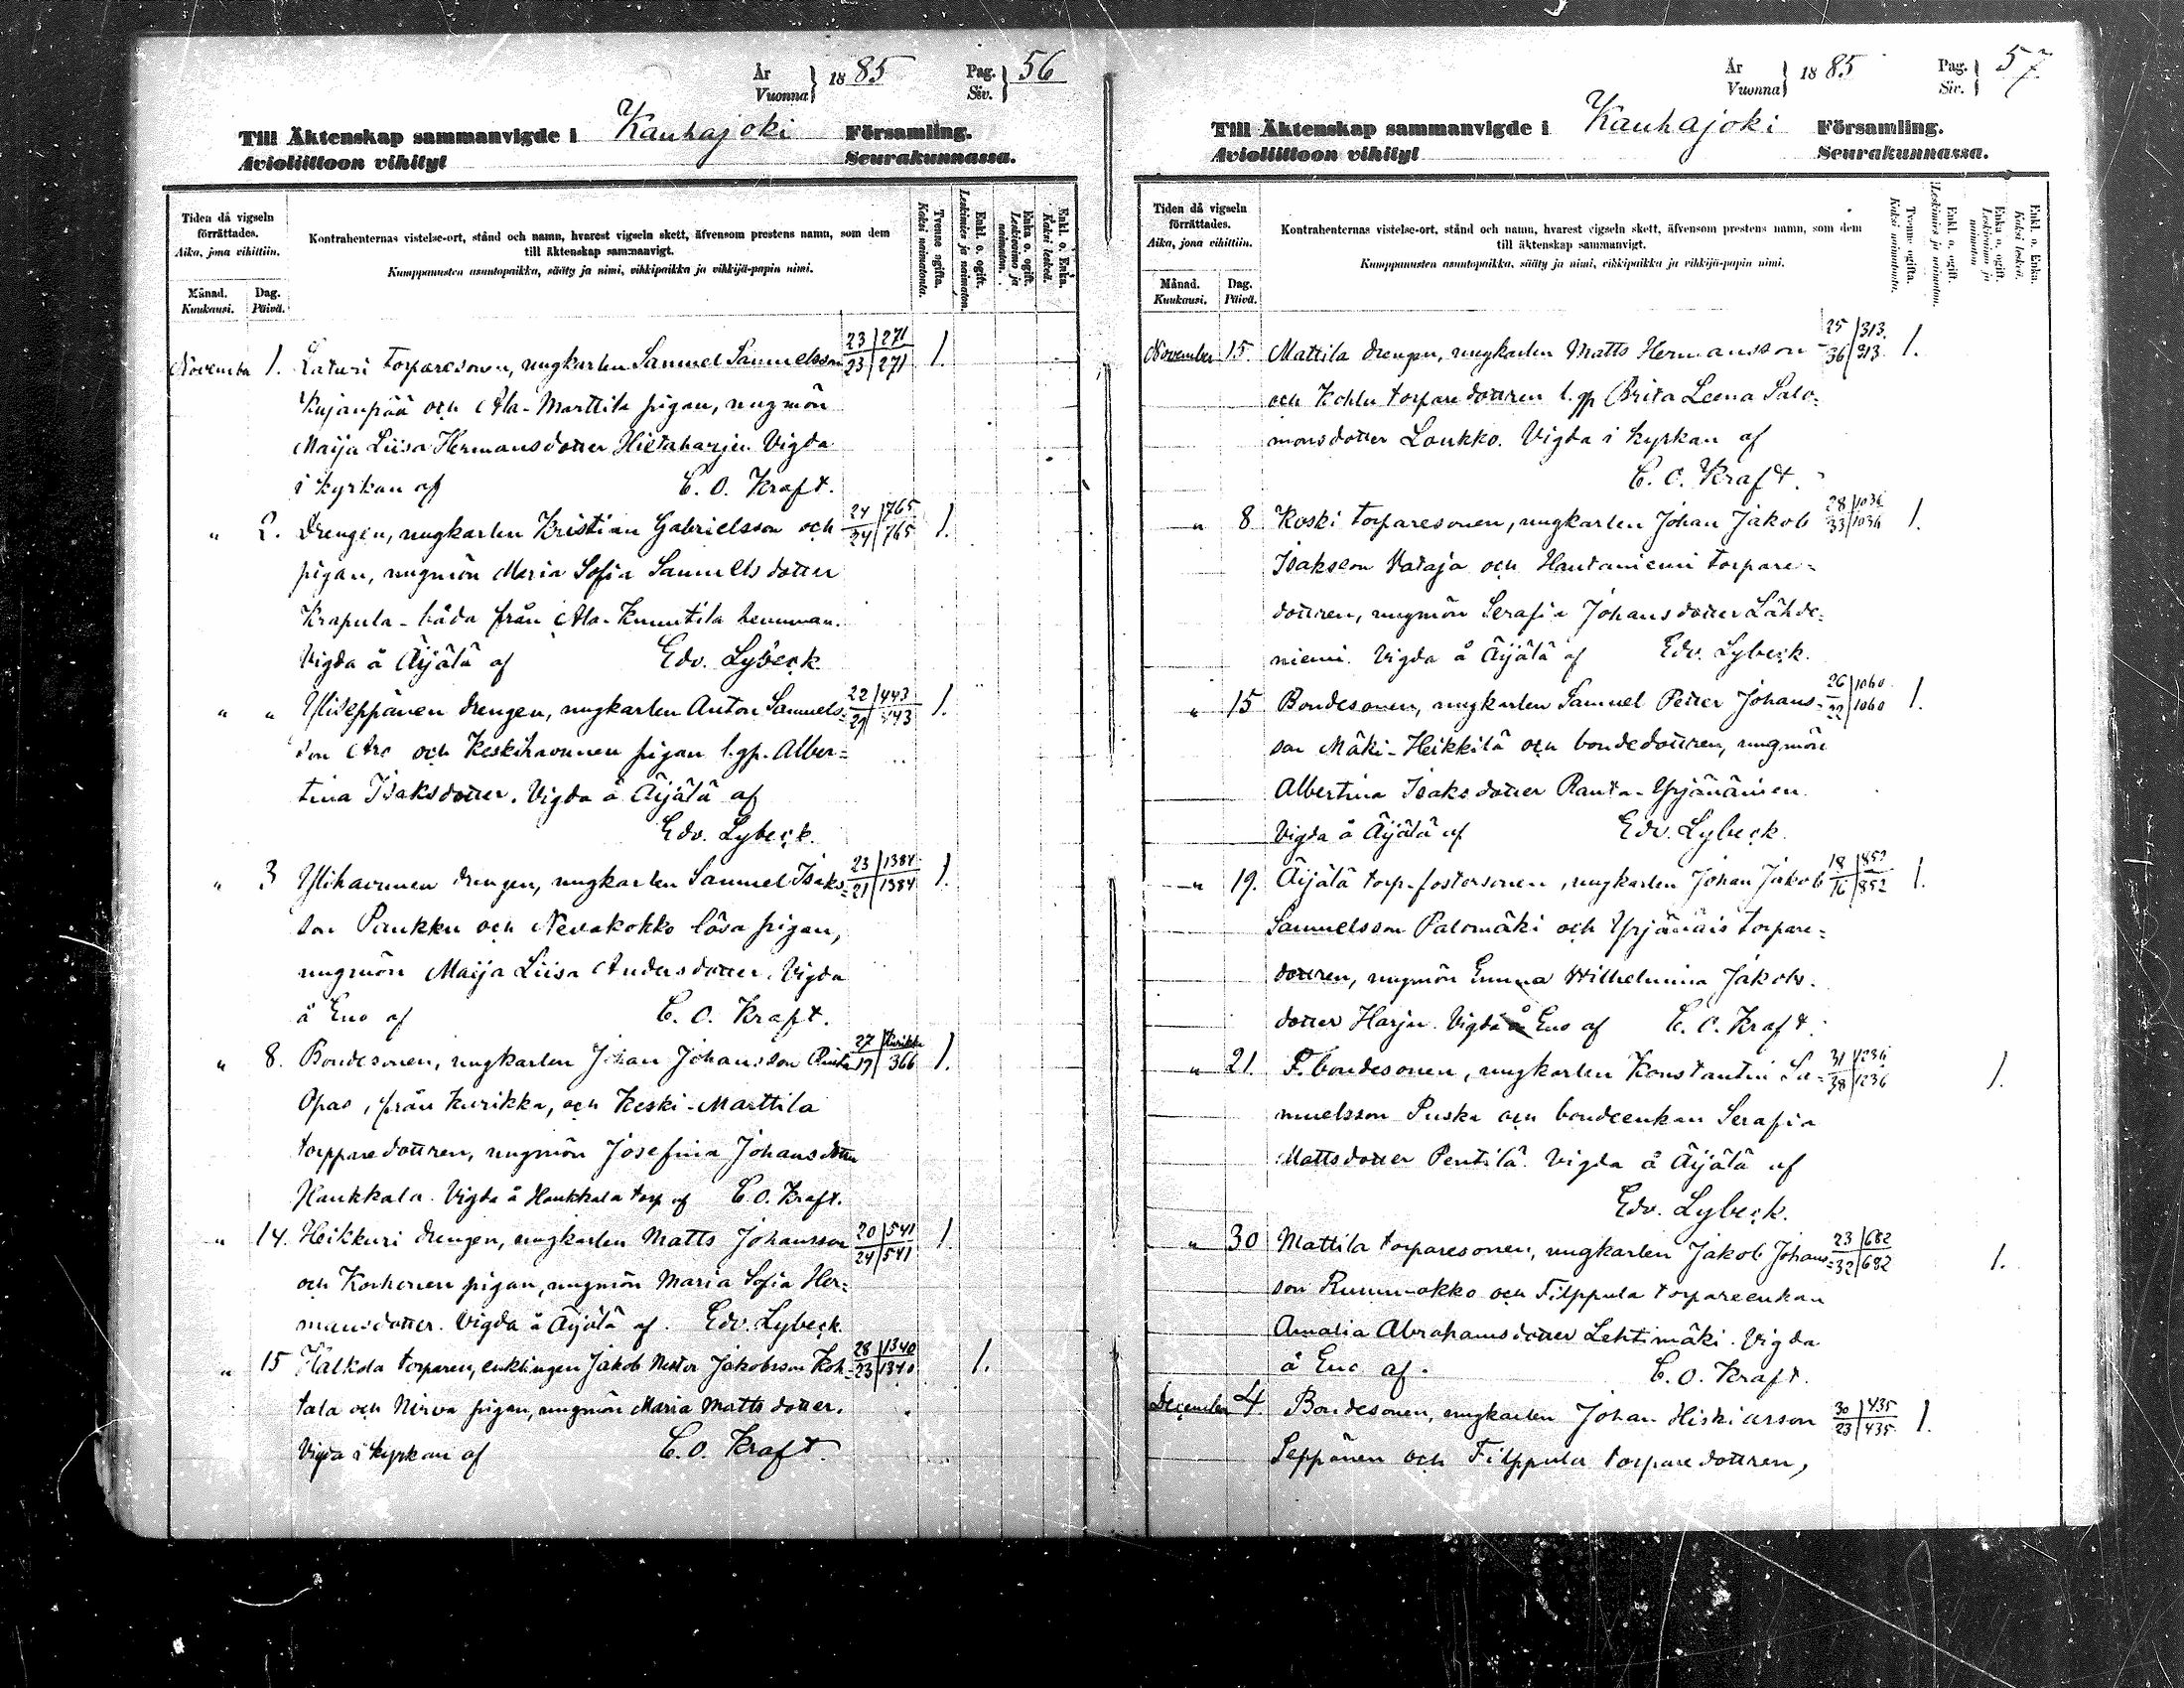 År
Vuonna } 1885
Pag.
Siv. } 56
Till Äktenskap sammanvigde i Kauhajoki Församling.
Avioliittoon vihityt Seurakunnassa.
Tiden då vigseln
förrättades.
Aika, jona vihittiin.
Månad.
Kuukausi.
Dag.
Päivä.
Kontrahenternas vistelse-ort, stånd och namn, hvarest vigseln skett, äfvensom prestens namn, som dem
till äktenskap sammanvigt.
Kumppanusten asuntopaikka, sääty ja nimi, vihkipaikka ja vihkijä-papin nimi.
Tvenne ogifta.
Kaksi naimatonta.
Enkl. o. ogift.
Leskimies ja naimaton.
Enka o. ogift.
Leskivaimo ja
naimaton.
Enkl. o. Enka.
Kaksi leskeä.
November 1. Laturi torparesonen, ungkarlen Samuel Samuelsson 23/271 23/271 1.
Kujanpää och Ala-Marttila pigan, ungmön
Maija Liisa Hermansdotter Hietaharju. Vigda
i kyrkan af C. O. Kraft.
" 2. Drengen, ungkarlen Kristian Gabrielsson och 24/765 24/765 1.
pigan, ungmön Maria Sofia Samuelsdotter
Krapula - båda från Ala-Knuutila hemman.
Vigda å Äijälä af Edv. Lybeck
" " Yliseppänen drengen, ungkarlen Anton Samuels= 22/443 /443 1.
son Aro och Keskihavunen pigan l.qp. Alber=
tina Isaksdotter. Vigda å Äijälä af
Edv. Lybeck.
" 3 Ylihavunen drengen, ungkarlen Samuel Isaks= 23/1384 21/1384 1.
son Paukku och Nevakokko lösa pigan,
ungmön Maija Liisa Andersdotter. Vigda
å Eno af C. O. Kraft.
" 8. Bondesonen, ungkarlen Johan Johansson 27/Kurikka 19/366 1.
Opas, från Kurikka, och Keski-Marttila
torppare dottren, ungmön Josefina Johansdotter
Haukkala. Vigda å Haukkala torp af C. O. Kraft.
" 14. Heikkuri drengen, ungkarlen Matts Johansson 20/541 24/541 1.
och Korhonen pigan, ungmön Maria Sofia Her=
mansdotter. Vigda å Äijälä af. Edv. Lybeck.
" 15 Halkola torparen, enklingen Jakob Nestor Jakobsson Koh= 28/1340 23/1340 1.
tala och Nirva pigan, ungmön Maria Mattsdotter.
Vigda i kyrkan af C. O. Kraft.
År
Vuonna } 1885
Pag.
Siv. } 57
Till Äktenskap sammanvigde i Kauhajoki Församling.
Avioliittoon vihityt Seurakunnassa.
Tiden då vigseln
förrättades.
Aika, jona vihittiin.
Månad.
Kuukausi.
Dag.
Päivä.
Kontrahenternas vistelse-ort, stånd och namn, hvarest vigseln skett, äfvensom prestens namn, som dem
till äktenskap sammanvigt.
Kumppanusten asuntopaikka, sääty ja nimi, vihkipaikka ja vihkijä-papin nimi.
Tvenne ogifta.
Kaksi naimatonta.
Enkl. o. ogift.
Leskimies ja naimaton.
Enka o. ogift.
Leskivaimo ja
naimaton
Enkl. o. Enka.
Kaksi leskeä.
November 15. Mattila drengen, ungkarlen Matts Hermansson 25/313. 36/313. 1.
och torpare dottren l. qp Brita Leena Salo=
monsdotter Loukko. Vigda i kyrkan af
C. O. Kraft.
" 8 Koski torparesonen, ungkarlen Johan Jakob 28/1036 33/1036 1.
Isaksson Vataja och Hautaniemi torpare=
dottren, ungmön Serafia Johansdotter Lähde=
niemi. Vigda å Äijälä af Edv. Lybeck.
" 15 Bondesonen, ungkarlen Samuel Petter Johans= 26/1060 22/1060 1.
son Mäki-Heikkilä och bondedottren, ungmön
Albertina Isaksdotter Ranta-Yrjänäinen.
Vigda å Äijälä af Edv. Lybeck.
" 19. Äijälä torp.fostersonen, ungkarlen Johan Jakob 18/852 16/852 1.
Samuelsson Palomäki och Yrjänäis torpare=
dottren, ungmön Emma Wilhelmina Jakobs=
dotter Harju. Vigda å Eno af C. O. Kraft.
" 21. F. bondesonen, ungkarlen Konstantin Sa= 31/1236 38/1236 1.
muelsson Puska och bondeenkan Serafia
Mattsdotter Pentilä. Vigda å Äijälä af
Edv. Lybeck.
" 30 Mattila torparesonen, ungkarlen Jakob Johans= 23/682 32/682 1.
son Rummukko och Filppula torpareenkan
Amalia Abrahamsdotter Lehtimäki. Vigda
å Eno af. C. O. Kraft.
December 4. Bondesonen, ungkarlen Johan Hiskiasson 30/435 23/435 1.
Seppänen och Filppula torpare dottren,